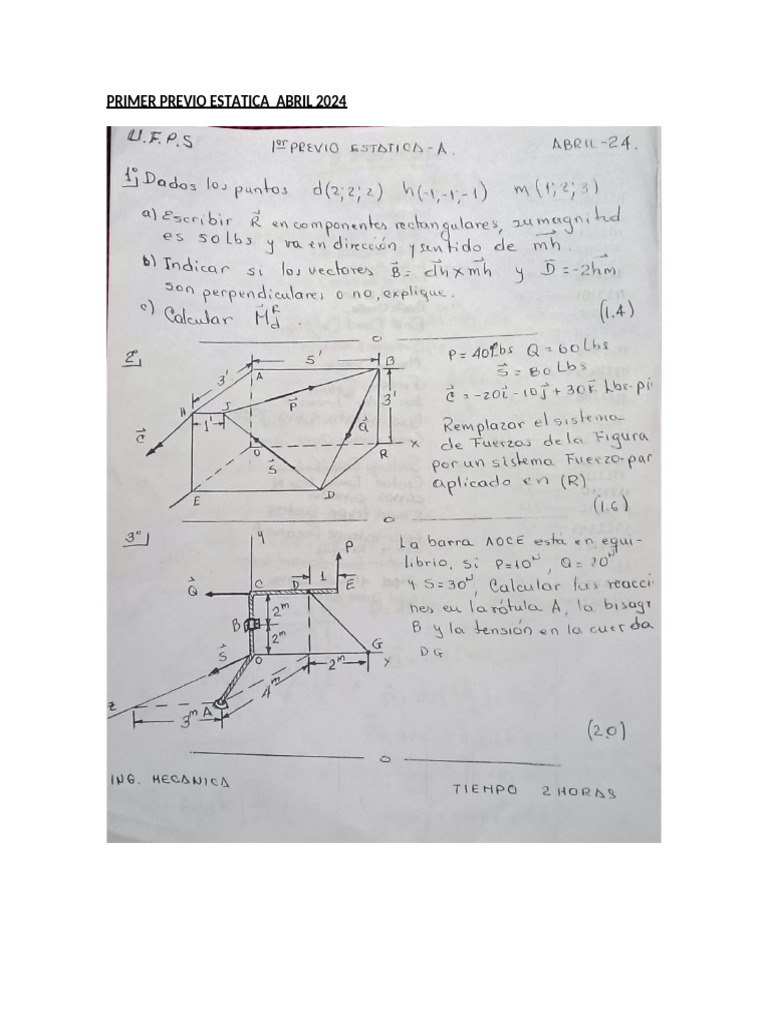 PRIMER PREVIO ESTATICA ABRIL 2024
U.F.P.S
1er PREVIO ESTATICA-A.
ABRIL-24.
1°) Dados los puntos d(2;2;2) h(-1,-1;-1) m(1;2;3)
a) Escribir R⃗ en componentes rectangulares, su magnitud
es 50 Lbs y va en dirección y sentido de mh.
b) Indicar si los vectores B⃗ = dh x mh y D⃗ = -2hm
son perpendiculares o no, explique.
c) Calcular M⃗dR.
(1.4)
2°)
P = 40Lbs Q = 60 Lbs
S⃗ = 80 Lbs
C⃗ = -20i - 10j + 30k Lbs-pi
Remplazar el sistema
de Fuerzas de la Figura
por un sistema Fuerza-par
aplicado en (R)
(1.6)
5'
A
B
3'
H
J
P⃗
3'
C⃗
1'
Q⃗
O
X
S⃗
R
E
D
3°)
La barra AOCE está en equi-
librio, si P=10N, Q=20N
y S=30N, Calcular las reacci
nes en la rótula A, la bisagr
B y la tensión en la cuerda
DG
(2.0)
y
P
Q⃗
C
D
1
E
2m
B
2m
S⃗
O
G
X
2m
4m
z
3m
A
ING. MECANICA
TIEMPO 2 HORAS